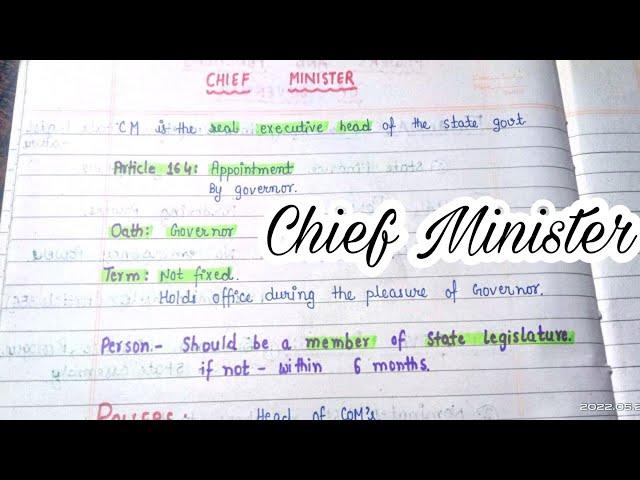 CHIEF MINISTER
CM is the real executive head of the state govt
Article 164: Appointment
By governor.
Oath: Governor
Chief Minister
Term: Not fixed.
Holds office during the pleasure of Governor.
Person:- Should be a member of State legislature.
if not - within 6 months.
POWERS: Head of COM's
2022.05.2